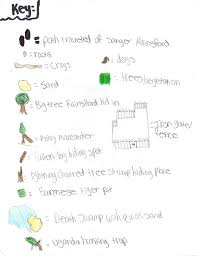 Key:
= path traveled of Sanger Rainsford
= rocks
= Crags
= dogs
= Sand
= trees/vegetation
= Big tree Rainsford hid in
= Iron gate/fence
= Malay mancatcher
= fallen log hiding spot
= lightning charred tree stump hiding place
= Burmese tiger pit
= Death Swamp with quick sand
= Uganda hunting trap